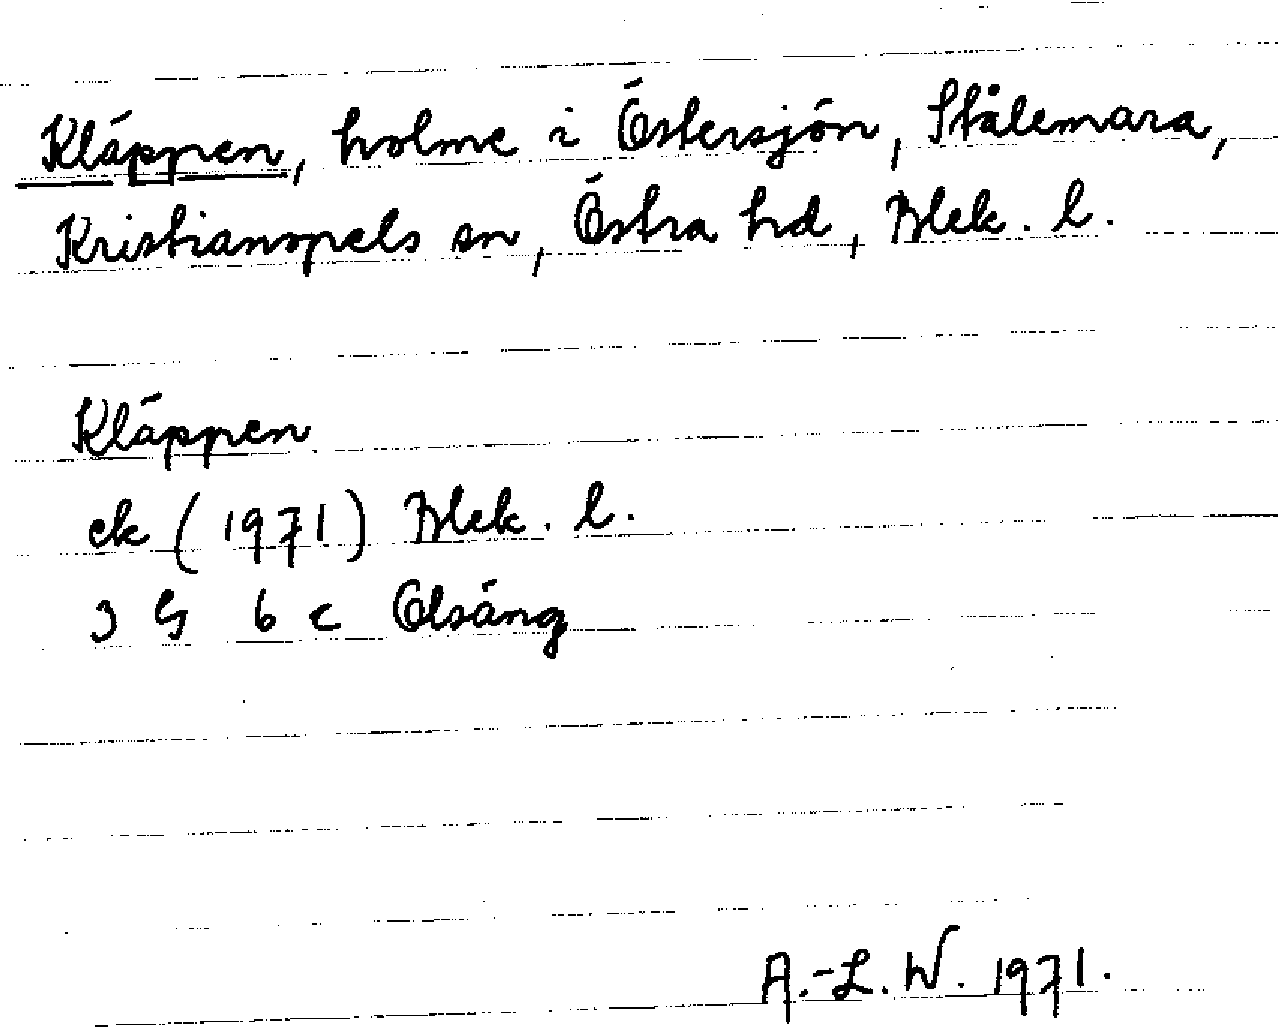 Kläppen, holme i Östersjön, Stålemara,
Kristianopels sn, Östra hd, Blek. l.
Kläppen
ek (1971) Blek. l.
3 G 6 c Olsäng
A.-L. W. 1971.